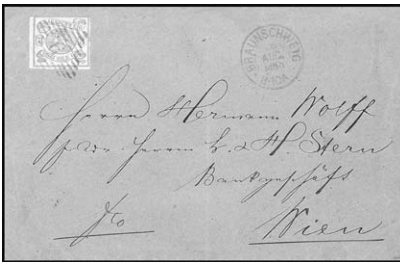 BRAUNSCHWEIG
Herrn Hermann Wolff
Herrn L. & H. Stern
Bankgeschäft
fco
Wien